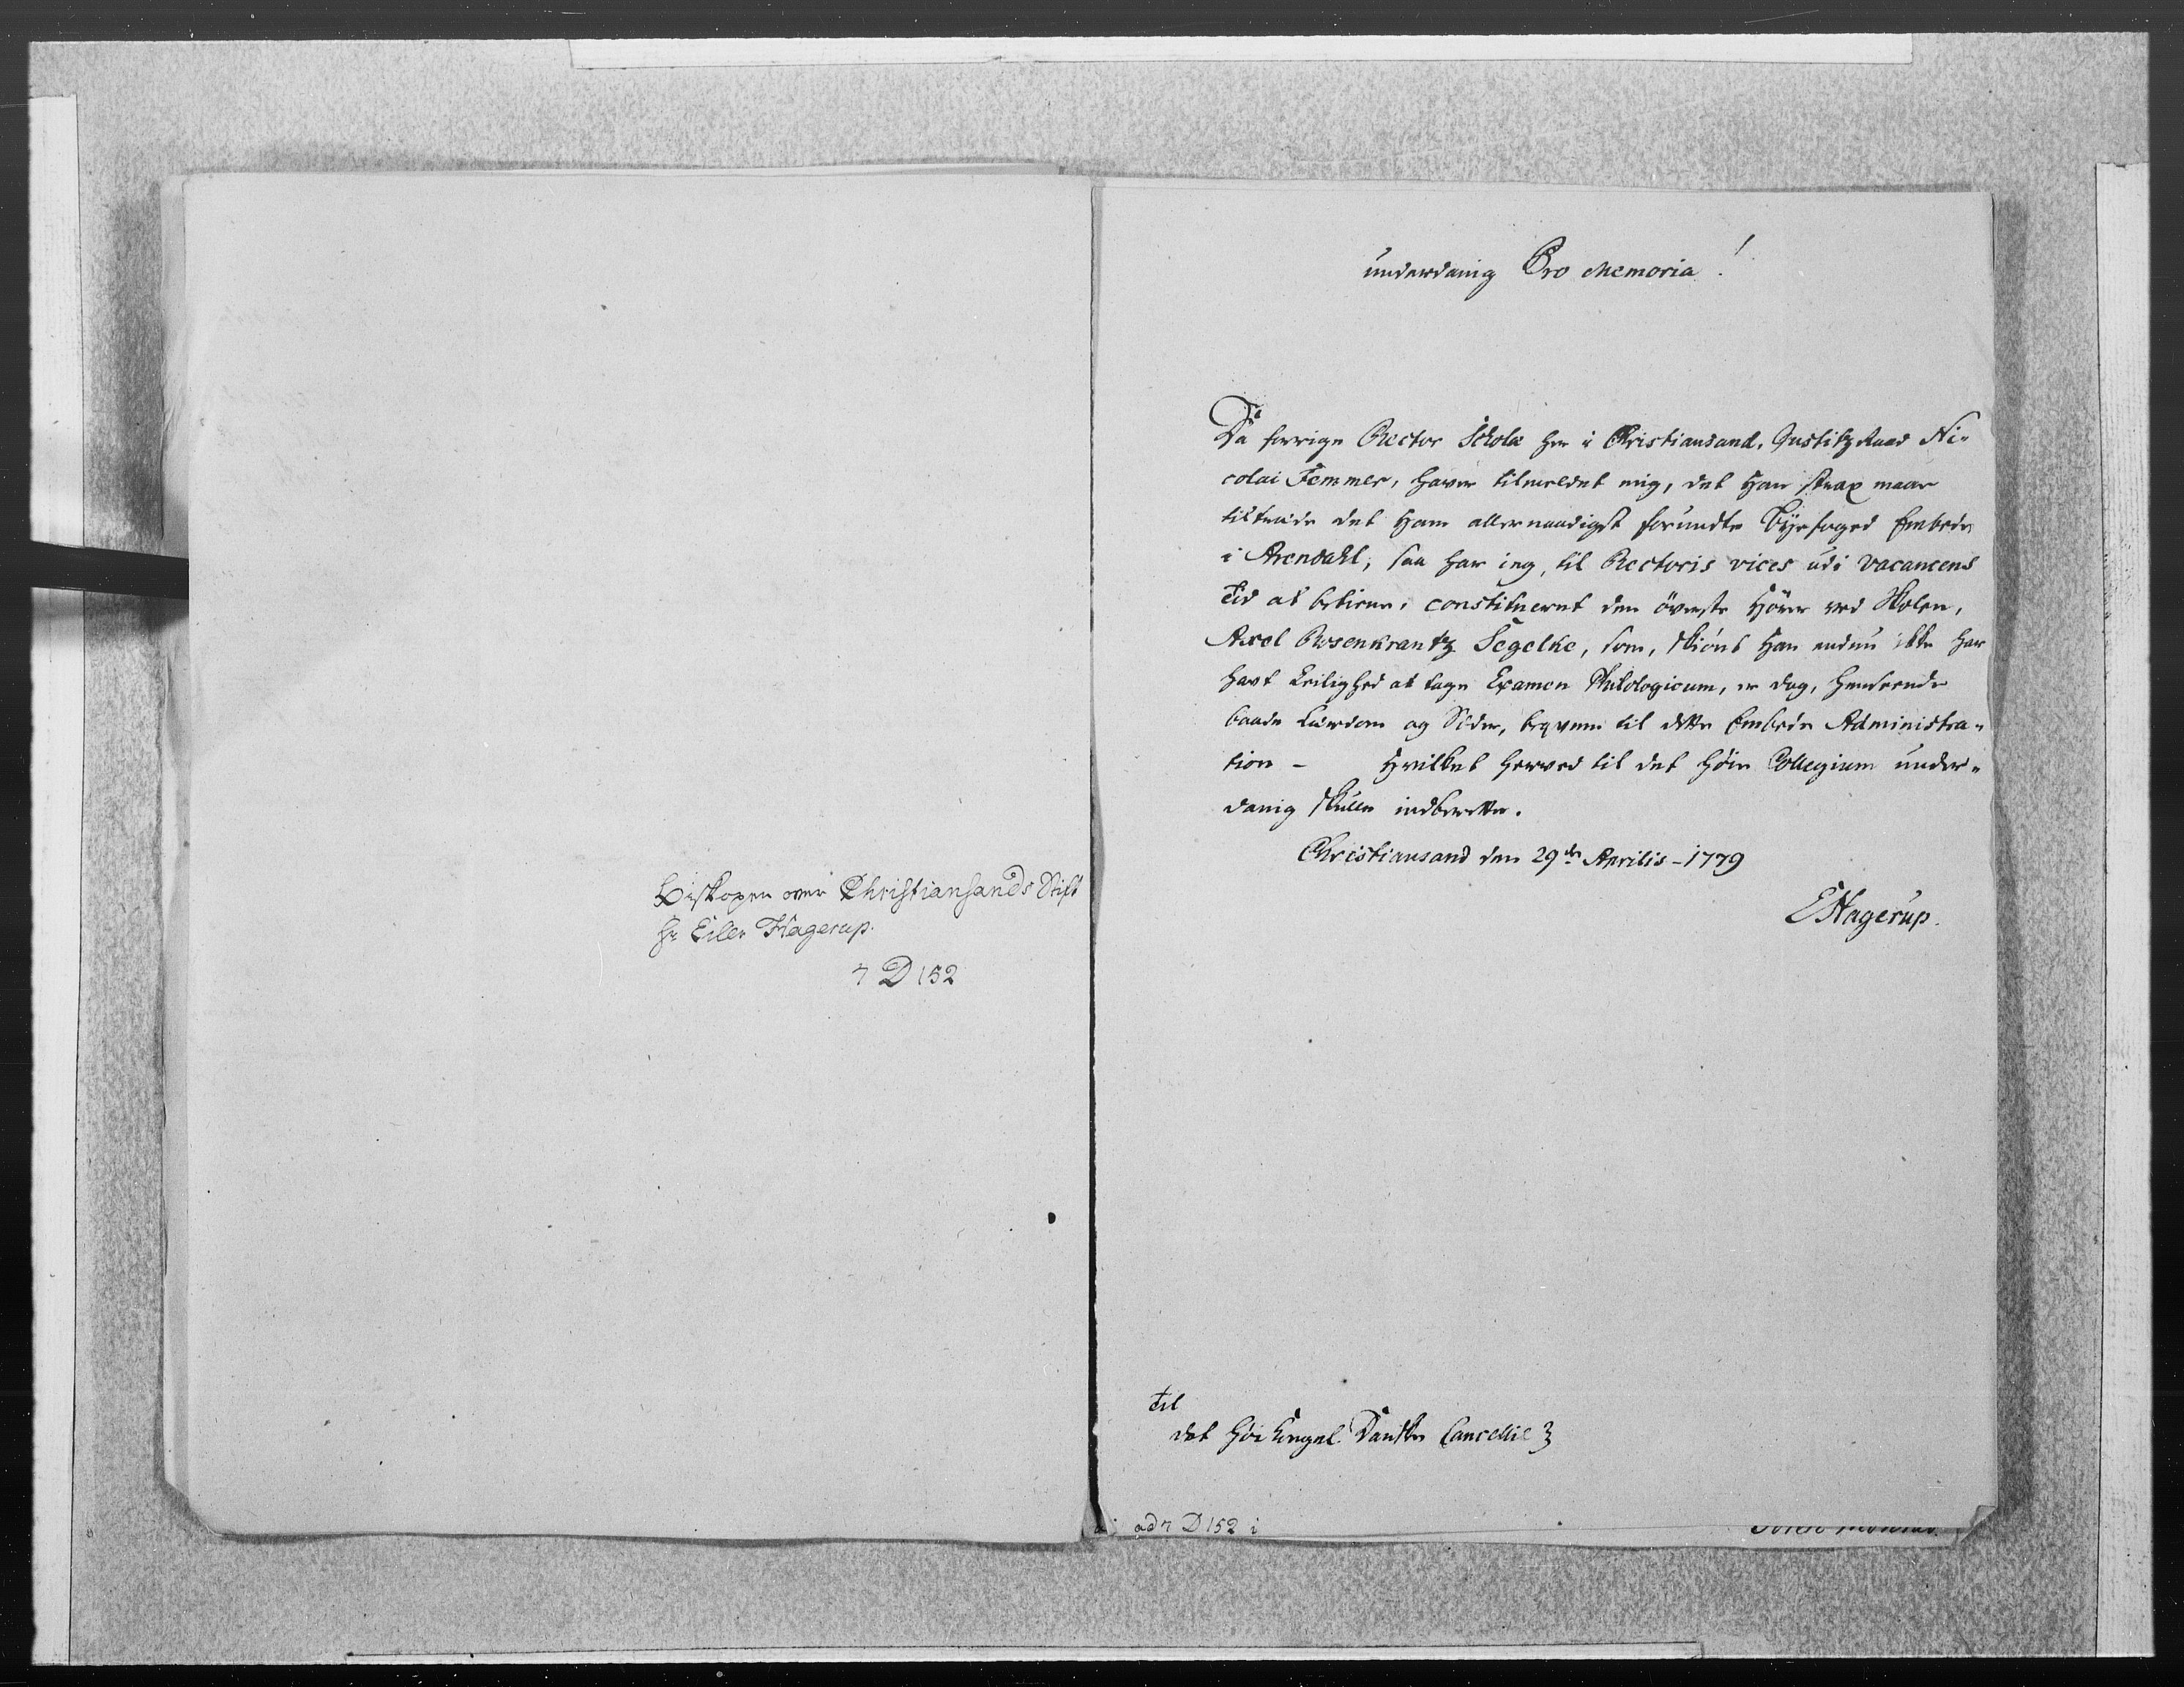 Biskopen over Christiansands Stift
Hr Eiler Hagerup.
7 D 152
underdanig Pro Memoria!
Da forrige Rector Scholæ her i Christiansand, Justitz Raad Ni-
colai Femmer, haver tilmeldet mig, det Han strax maae
tiltræde det Ham allernaadigst forundte Byefoged Embede
i Arendahl, saa har jeg, til Rectoris vices udi vacancens
Tid at betiene, constitueret den överste Hörer ved Skolen,
Axel Rosenkrantz Segelke, som, skiönt Han endnu ikke har
havt Leilighed at tage Examen Philologicum, er dog, henseende
baade Lærdom og Sæder, beqvem til dette Embedes Administra-
tion - Hvilket herved til det höie Collegium under-
danig skulle indberette.
Christiansand den 29de Aprilis - 1779
EHagerup.
Til
det höie Kongel. Danske Cancellie
ad 7 D 152